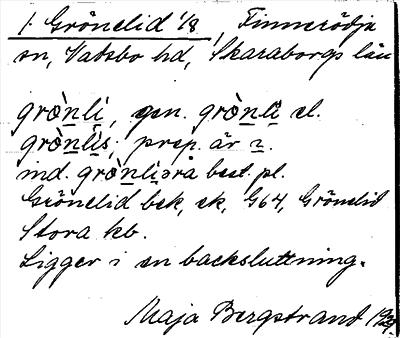 1. Grönelid 1/8, Finnerödja
sn, Vadsbo hd, Skaraborgs län
grö̀nli, gen. grö̀nli el.
grö̀nlis; prep. är i.
ind. grö̀nliəra best. pl.
Grönelid bek, ek, G64, Grönelid
Stora kb.
Ligger i en backsluttning.
Maja Bergstrand